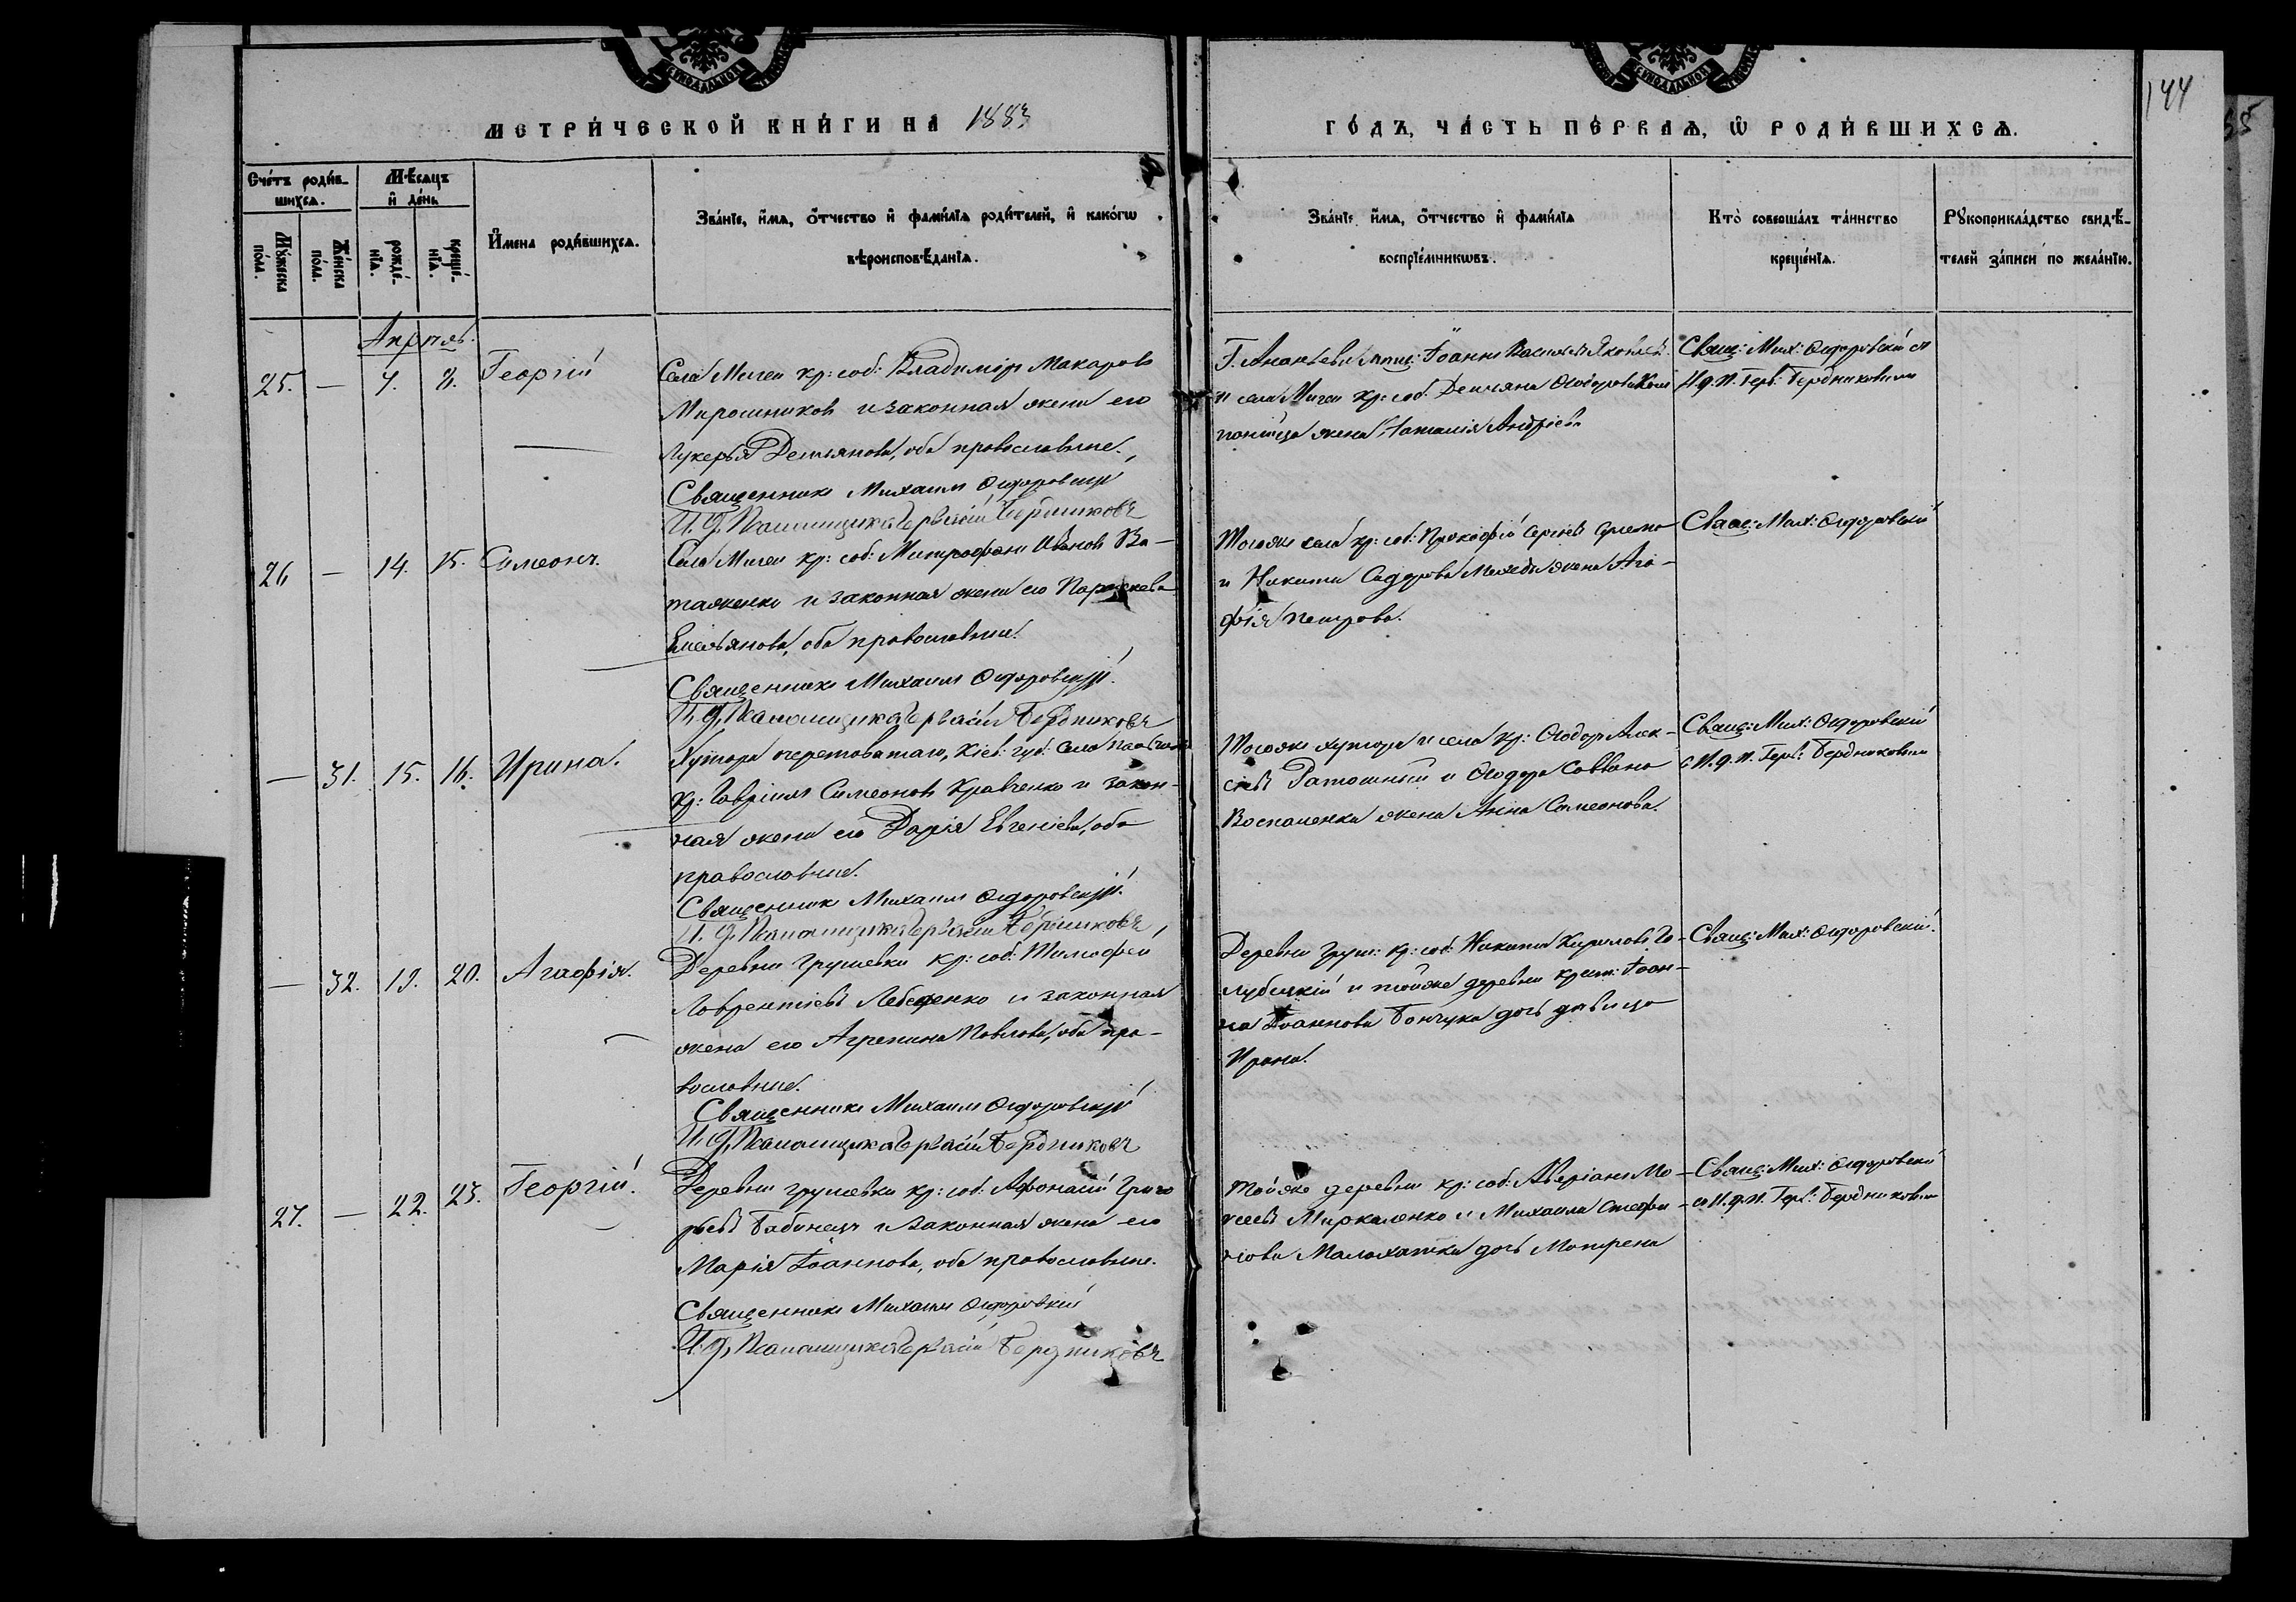 144
МЕТРИ́ЧЕСКОЙ КНИ́ГИ НА 1883
ГО́ДЪ, ЧА́СТЬ ПЕ́РВАѦ, Ѽ РОДИ́ВШИХСѦ.
Сче́тъ роди́в-
шихсѧ.
Мѣ́сѧцъ
и҆ де́нь
Мꙋ́жеска
по́ла.
Же́нска
по́ла.
рожде́-
нїѧ.
креще́-
нїѧ.
И҆мена роди́вшихсѧ.
Зва́нїе, и҆́мѧ, ѻ҆́тчество и҆ фамилїѧ роди́телей, и҆ како́гѡ
вѣроисповѣ́данїѧ.
Зва́нїе, и҆́мѧ, ѻ҆́тчество и҆ фами́лїѧ
воспрїе́мникѡвъ.
Кто̀ соверша́лъ та́инство
креще́нїѧ.
Рꙋкоприкла́дство свидѣ́-
телей за́писи по жела́нїю.
Апрѣль.
25. — 7. 8. Георгій
Села Мигеи кр: соб: Владиміръ Макаровъ
Мирошниковъ и законная жена его
Лукерья Демьянова, оба православные.
Священникъ Михаилъ Сидоровскій
И. д. Псаломщика Гервасій Бердниковъ
Г. Ананьева мѣщ: Іоаннъ Яковлевъ
и села Мигеи кр: соб: Демьяна
жена Наталія Андріева
Свящ: Мих: Сидоровскій съ
И. д. п. Герв: Бердниковымъ
26 — 14. 15. Симеонъ.
Села Мигеи кр: соб: Митрофанъ Ивановъ Ва-
таженко и законная жена его Параскева
Емельянова, оба православные.
Священникъ Михаилъ Сидоровскій
И. д. Псаломщика Гервасій Бердниковъ
Тогоже села кр: соб: Прокофій Сергіевъ
и Никиты Сидорова жена Ага-
фія Петрова.
Свящ: Мих: Сидоровскій
— 31. 15. 16. Ирина.
Хутора Кіев: губ: села
кр: Гавріилъ Симеоновъ Кравченко и закон-
ная жена его Дарія Евгеніева, оба
православные.
Священникъ Михаилъ Сидоровскій
И. д. Псаломщика Гервасій Бердниковъ
Тогоже хутора и села кр: Ѳеодоръ Алек-
сіевъ и Ѳеодора Саввина
жена Анна Симеонова.
Свящ: Мих: Сидоровскій
съ И. д. п. Герв: Бердниковымъ
— 32. 19. 20. Агафія.
Деревни Грушевки кр: соб: Тимофей
Лаврентіевъ Лебеденко и законная
жена его Агрепина Павлова, оба пра-
вославные.
Священникъ Михаилъ Сидоровскій
И. д. Псаломщика Гервасій Бердниковъ
Деревни Груш: кр: соб: Никита Кириловъ Го-
лубицкій и тойже деревни крест: Іоан-
на Іоаннова Бончука дочь дѣвица
Ирина.
Свящ: Мих: Сидоровскій.
27. — 22. 23. Георгій.
Деревни Грушевки кр: соб: Афонасій Григо
рьевъ Бабинецъ и законная жена его
Марія Іоаннова, оба православные.
Священникъ Михаилъ Сидоровскій
И. д. Псаломщика Гервасій Бердниковъ
Тойже деревни кр: соб: Аверіанъ Мо-
исеевъ и Михаила Стефа-
нова Малохатка дочь Матрена
Свящ: Мих: Сидоровскій
съ И. д. п. Герв: Бердниковымъ